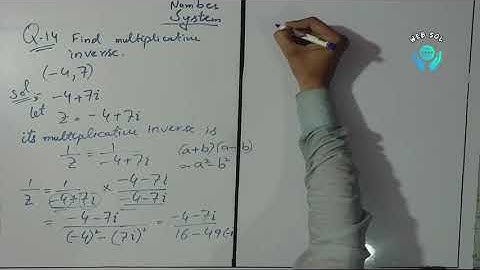 Number
System
Q.14 Find multiplicative
inverse.
(-4,7)
Sol:- -4+7i
let
z = -4+7i
its multiplicative inverse is
1/z = 1/-4+7i (a+b)(a-b)
= a²-b²
1/z = 1/-4+7i × -4-7i/-4-7i
= -4-7i/(-4)²-(7i)² = -4-7i/16-49(-1
WEB SOL